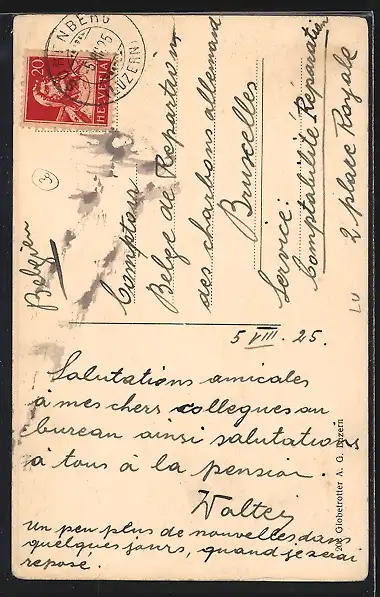 20
HELVETIA
LUZERN
Belgien
Comptoir
Belge de Repartition
des charbons allemand
Bruxelles
Service:
Comptabilité Réparation
2 place Royale
LU
5 VIII. 25.
Salutations amicales
à mes chers collegues au
bureau ainsi salutations
à tous à la pension.
Walter
Un peu plus de nouvelles dans
quelques jours, quand je serai
reposé.
Globetrotter A. G. Luzern